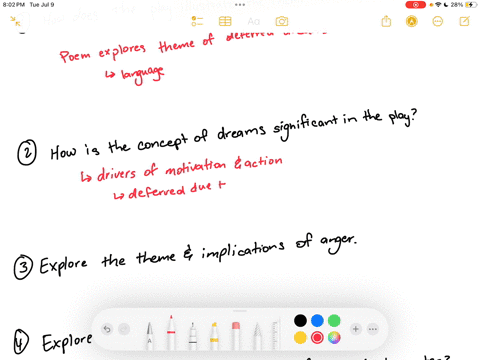 8:02 PM Tue Jul 9
28%
Aa
Poem explores theme of deferred
↳ language
② How is the concept of dreams significant in the play?
↳ drivers of motivation & action
↳ deferred due t
③ Explore the theme & implications of anger.
④ Explore
A